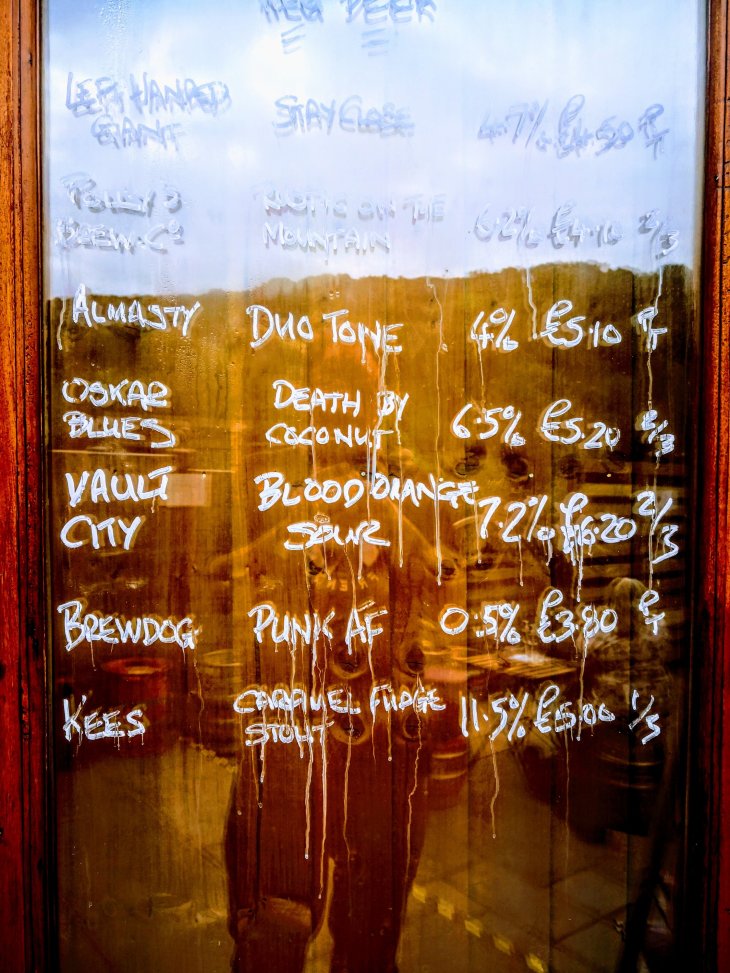 KEG BEER
LEFT HANDED STAY CLOSE 4.7% £4.50 PT
GIANT
POLLY'S ON THE 6.2% £4.10 2/3
BREW. Cº MOUNTAIN
ALMASTY DUO TONE 4% £5.10 PT
OSKAR DEATH BY
BLUES COCONUT 6.5% £5.20 2/3
VAULT BLOOD ORANGE 7.2% £6.20 2/3
CITY SOUR
BREWDOG PUNK AF 0.5% £3.80 PT
KEES CARAMEL FUDGE 11.5% £5.00 1/3
STOUT